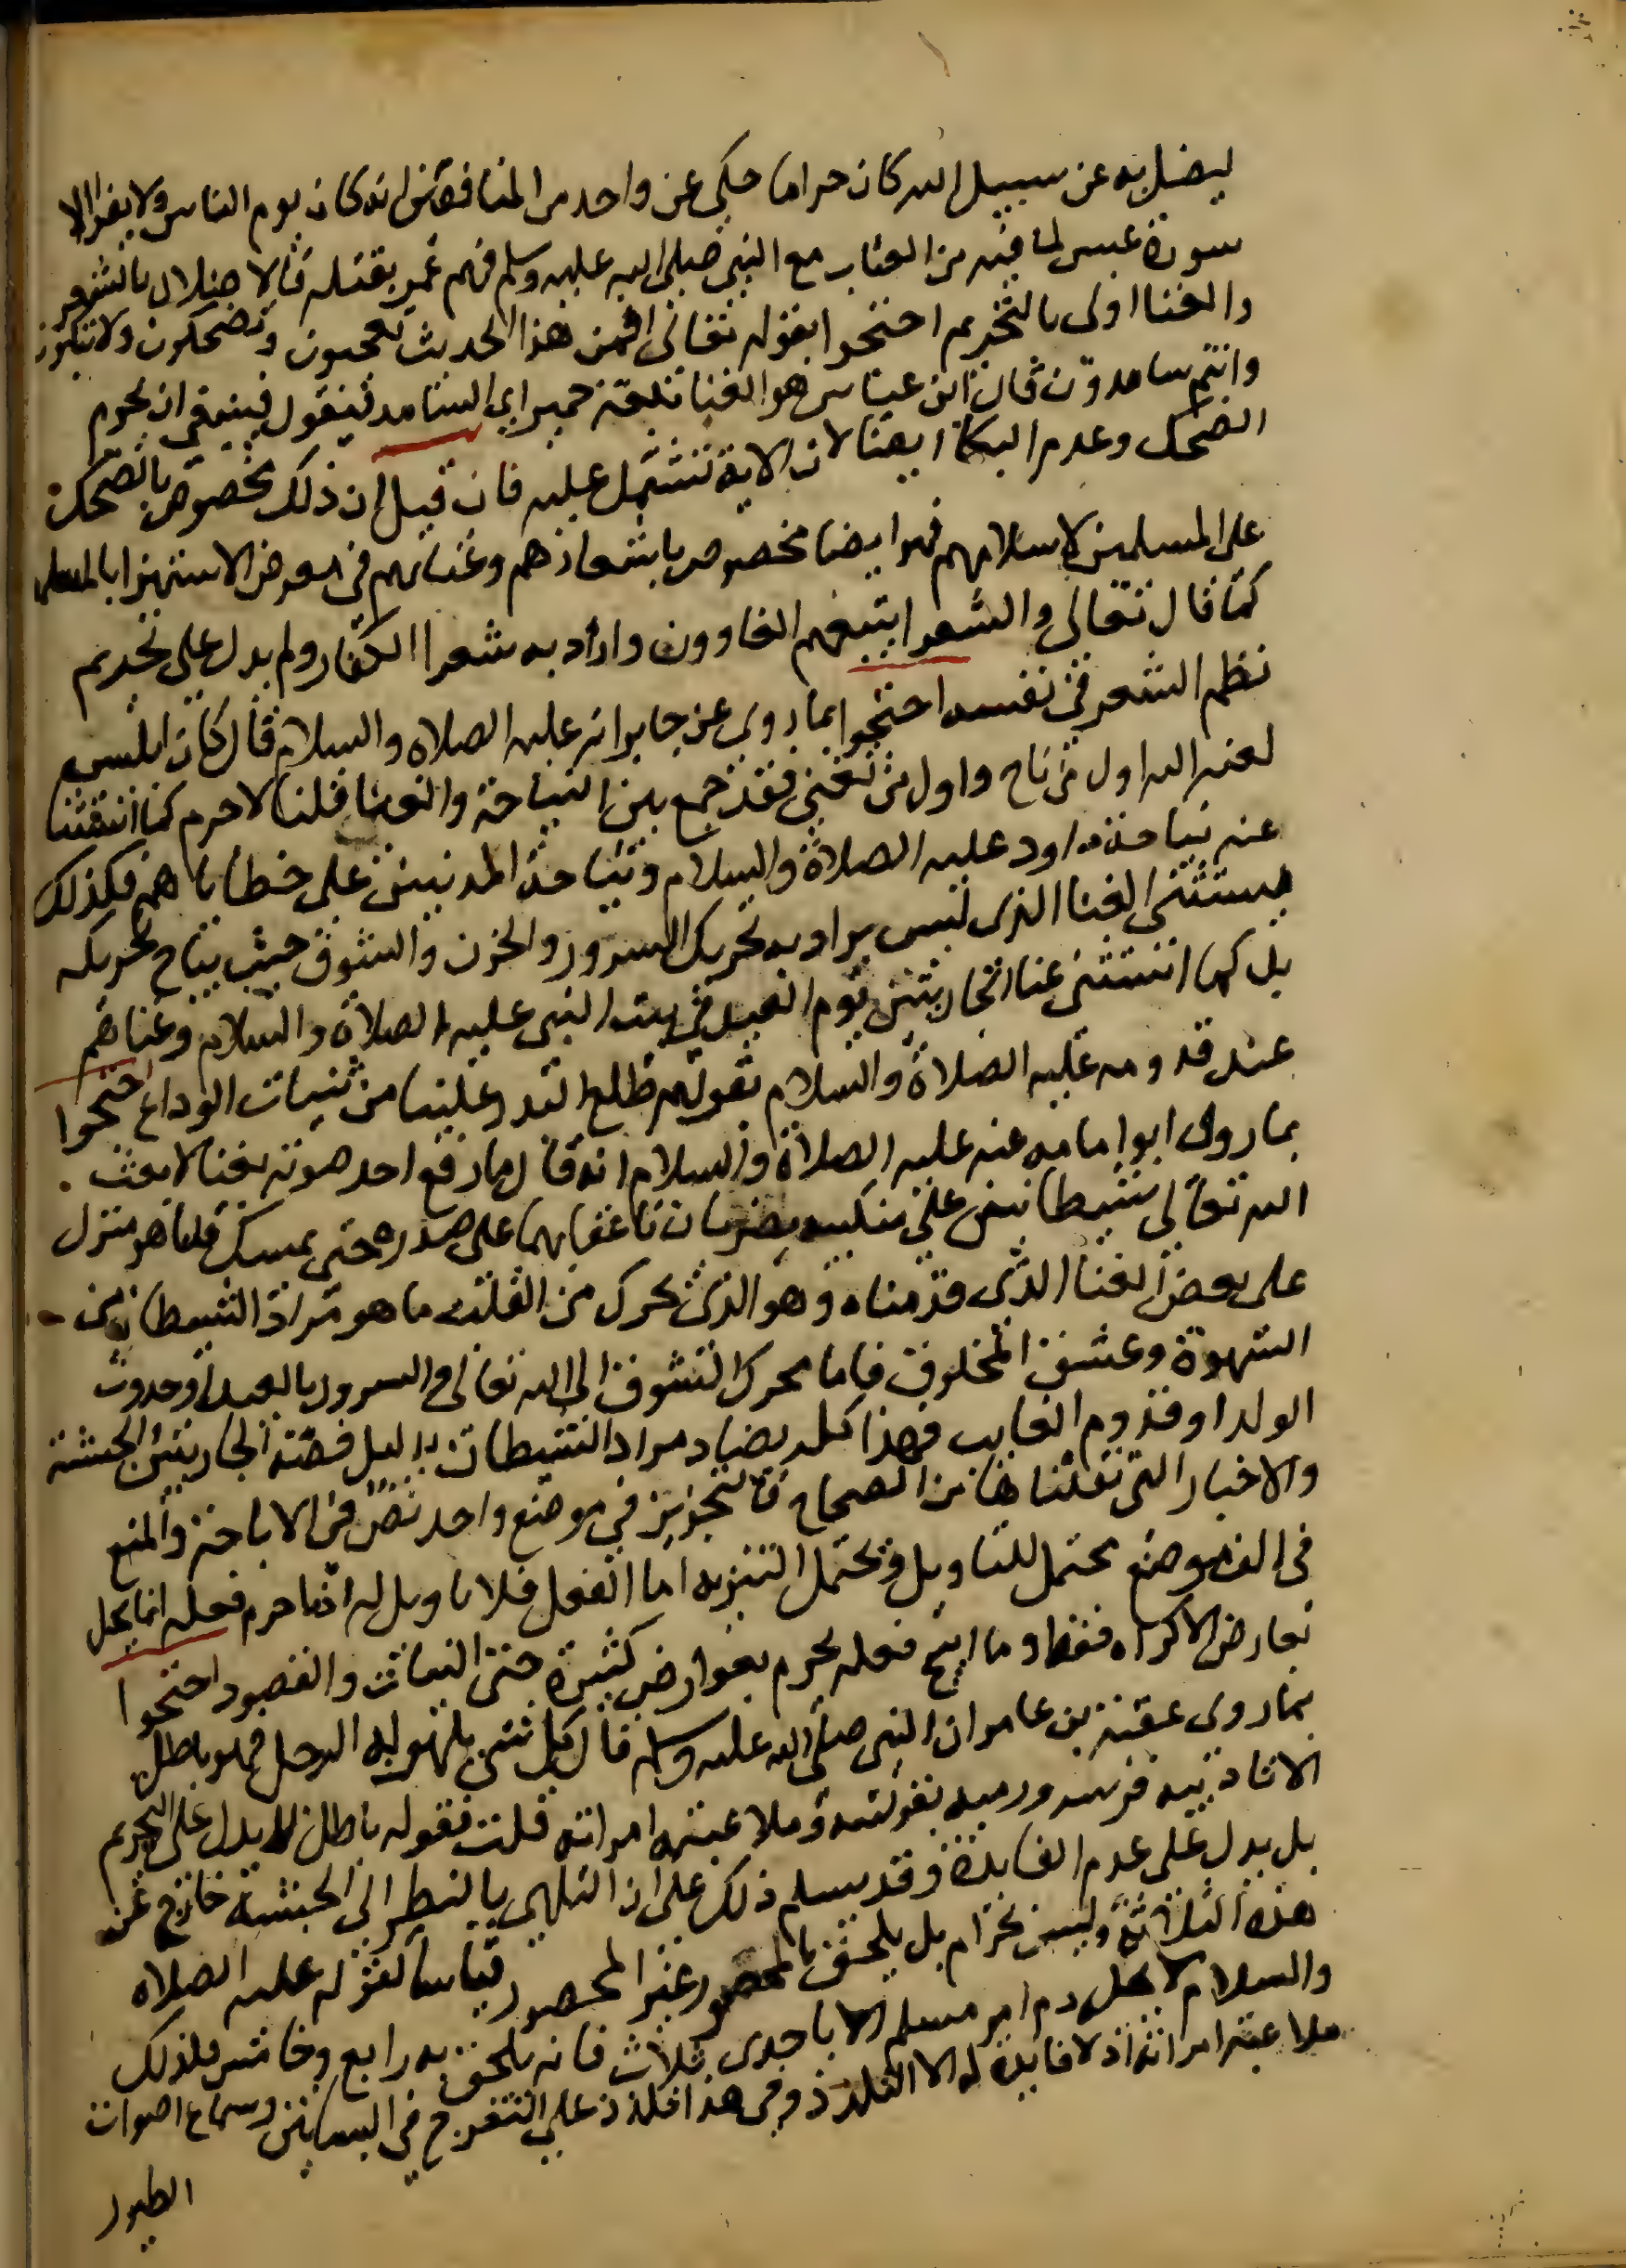 ليضل به عن سبيل الله كان حراما حكي عن واحد من المنافقين انه كان يوم الناس ولا يقرا الا
سورة عبس لما فيه من العتاب مع النبي صلى الله عليه وسلم فهم عمر بقتله فالاضلال بالشعر
والغنا اولى بالتحريم احتجوا بقوله تعالى افمن هذا الحديث تعجبون وتضحكون ولا تبكون
وانتم سامدون قال ابن عباس هو الغنا بلغة حمير اي السامد فنقول فينبغي ان يحرم
الضحك وعدم البكا ايضا لان الاية تشتمل عليه فان قيل ان ذلك مخصوص بالضحك
على المسلمين لاسلامهم فهو ايضا مخصوص باشعارهم وغنايهم في معرض الاستهزا بالمسلمين
كما قال تعالى والشعرا يتبعهم الغاوون واراد به شعرا الكفار ولم يدل على تحريم
نظم الشعر في نفسه احتجوا بما روي عن جابر انه عليه الصلاه والسلام قال كان ابليس
لعنه الله اول من ناح واول من تغنى فقد جمع بين النياحة والغنا قلنا لا جرم كما استثنينا
عنه نياحة داود عليه الصلاة والسلام ونياحة المذنبين على خطاياهم فكذلك
يستثنى الغنا الذي ليس يراد به تحريك السرور والحزن والشوق حيث يباح تحريكه
بل كما استثنى غنا الجاريتين يوم العيد في بيت النبي عليه الصلاة والسلام وغناهم
عند قدومه عليه الصلاة والسلام بقولهم طلع البدر علينا من ثنيات الوداع احتجوا
بما روى ابو امامه عنه عليه الصلاة والسلام انه قال ما رفع احد صوته بغنا الا بعث
الله تعالى شيطانين على منكبيه يضربان باعقابهما على صدره حتى يمسك قلنا هو منزل
على بعض الغنا الذي قدمناه وهو الذي يحرك من القلب ما هو مراد الشيطان من
الشهوة وعشق المخلوق فاما ما يحرك الشوق الى الله تعالى والسرور بالعيد او حدوث
الولد او قدوم الغايب فهذا كله يضاد مراد الشيطان بدليل قصة الجاريتين الحبشة
والاخبار التي نقلناها من الصحاح فالتجويز في موضع واحد نص في الاباحة والمنع
في الف موضع محتمل للتاويل ومحتمل التنزيه اما الفعل فلا تاويل له اذ ما حرم فعله انما يحل
بعارض الاكراه فقط وما ابيح فعله يحرم بعوارض كثيرة حتى النيات والقصود احتجوا
بما روى عقبة بن عامر ان النبي صلى الله عليه وسلم قال كل شي يلهو به الرجل فهو باطل
الا تاديبه فرسه ورميه بقوسه وملاعبته امراته قلت فقوله باطل لا يدل على التحريم
بل يدل على عدم الفايدة وقد يسلم ذلك على ان التلهي بالنظر الى الحبشة خارج عن
هذه الثلاثة وليس بحرام بل يلحق بالمحصور غير المحصور قياسا لقوله عليه الصلاه
والسلام لا يحل دم امر مسلم الا باحدى ثلاث فانه يلحق به رابع وخامس فلذلك
ملاعبته امراته اذ لا فايدة له الا التلذذ وفي هذا دليل على التفرج في البساتين وسماع اصوات
الطيور